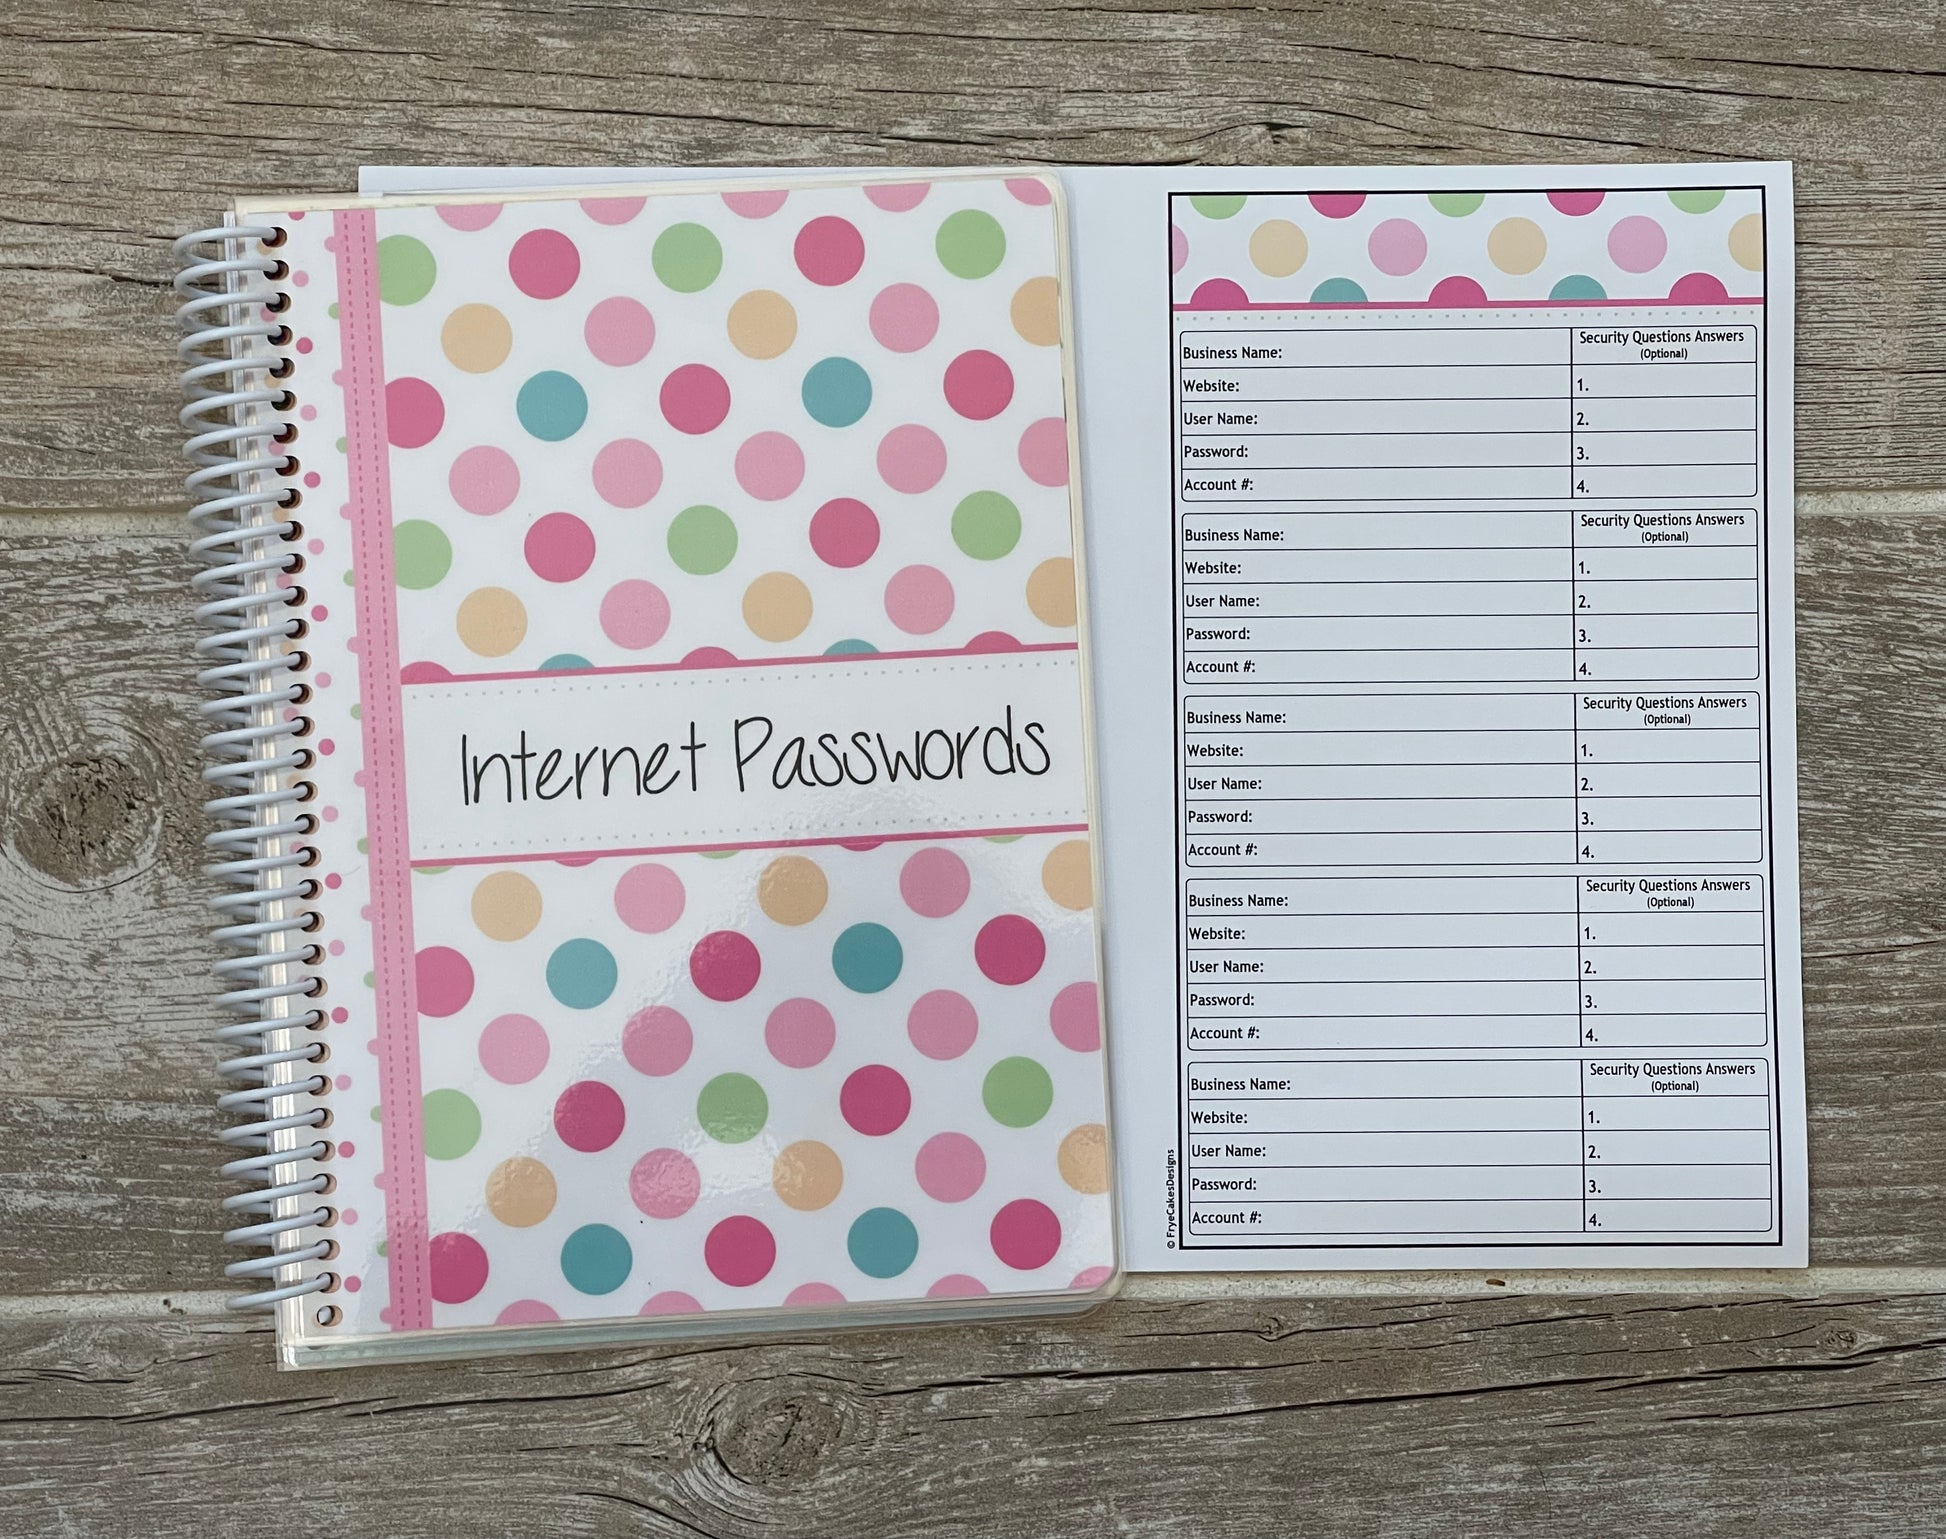 Internet Passwords
Business Name:
Security Questions Answers
(Optional)
Website:
1.
User Name:
2.
Password:
3.
Account #:
4.
Business Name:
Security Questions Answers
(Optional)
Website:
1.
User Name:
2.
Password:
3.
Account #:
4.
Business Name:
Security Questions Answers
(Optional)
Website:
1.
User Name:
2.
Password:
3.
Account #:
4.
Business Name:
Security Questions Answers
(Optional)
Website:
1.
User Name:
2.
Password:
3.
Account #:
4.
Business Name:
Security Questions Answers
(Optional)
Website:
1.
User Name:
2.
Password:
3.
Account #:
4.
© FryeCakesDesigns